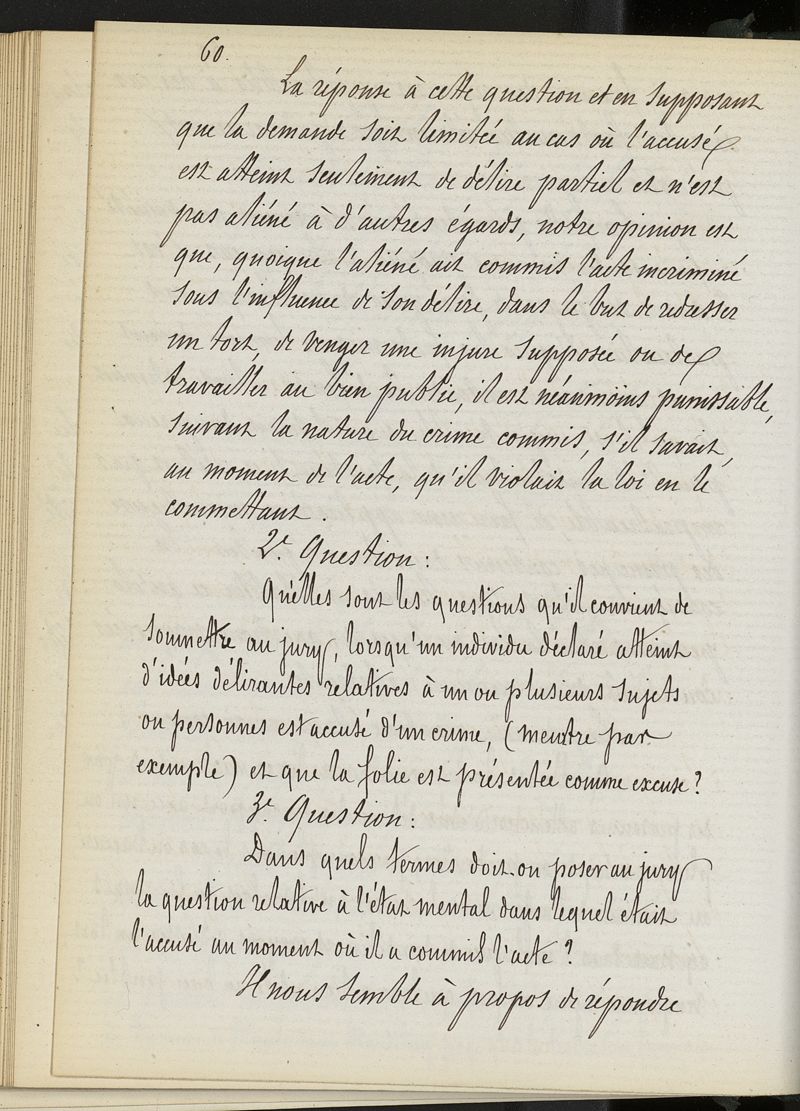 60.
La réponse à cette question et en supposant
que la demande soit limitée au cas où l'accusé
est atteint seulement de délire partiel et n'est
pas aliéné à d'autres égards, notre opinion est
que, quoique l'aliéné ait commis l'acte incriminé
sous l'influence de son délire, dans le but de redresser
un tort, de venger une injure supposée ou de
travailler au bien public, il est néanmoins punissable,
suivant la nature du crime commis, s'il savait,
au moment de l'acte, qu'il violait la loi en le
commettant.
2e. Question :
Quelles sont les questions qu'il convient de
soumettre au jury, lorsqu'un individu déclaré atteint
d'idées délirantes relatives à un ou plusieurs sujets
ou personnes est accusé d'un crime, (meurtre par
exemple) et que la folie est présentée comme excuse ?
3e. Question :
Dans quels termes doit-on poser au jury
la question relative à l'état mental dans lequel était
l'accusé au moment où il a commis l'acte ?
Il nous semble à propos de répondre